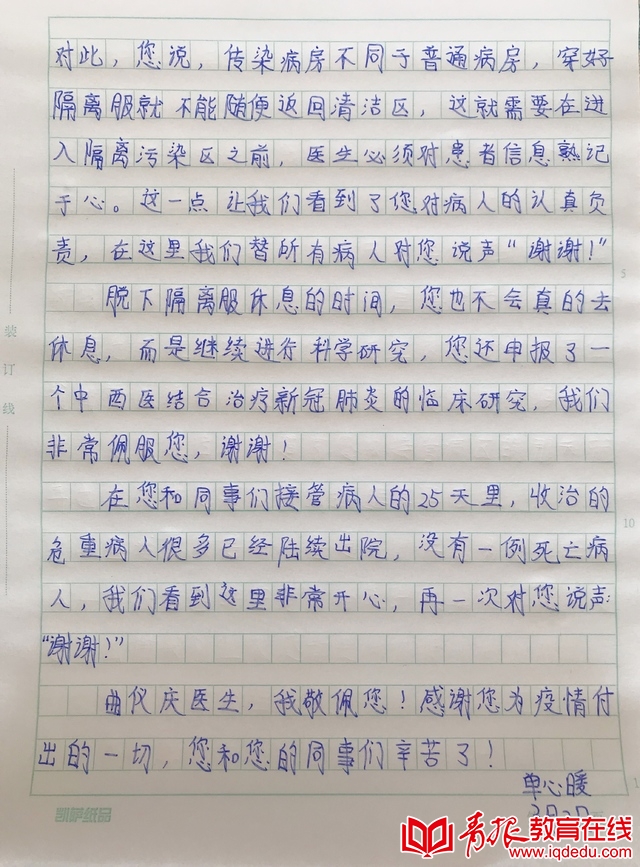 对此，您说，传染病房不同于普通病房，穿好
隔离服就不能随便返回清洁区，这就需要在进
入隔离污染区之前，医生必须对患者信息熟记
于心。这一点让我们看到了您对病人的认真负
责，在这里我们替所有病人对您说声“谢谢！”
脱下隔离服休息的时间，您也不会真的去
休息，而是继续进行科学研究，您还申报了一
个中西医结合治疗新冠肺炎的临床研究，我们
非常佩服您，谢谢！
在您和同事们接管病人的25天里，收治的
危重病人很多已经陆续出院，没有一例死亡病
人，我们看到这里非常开心，再一次对您说声：
“谢谢！”
曲仪庆医生，我敬佩您！感谢您为疫情付
出的一切，您和您的同事们辛苦了！
单心暖
装订线
5
10
1
凯萨纸品
青报教育在线
www.iqdedu.com